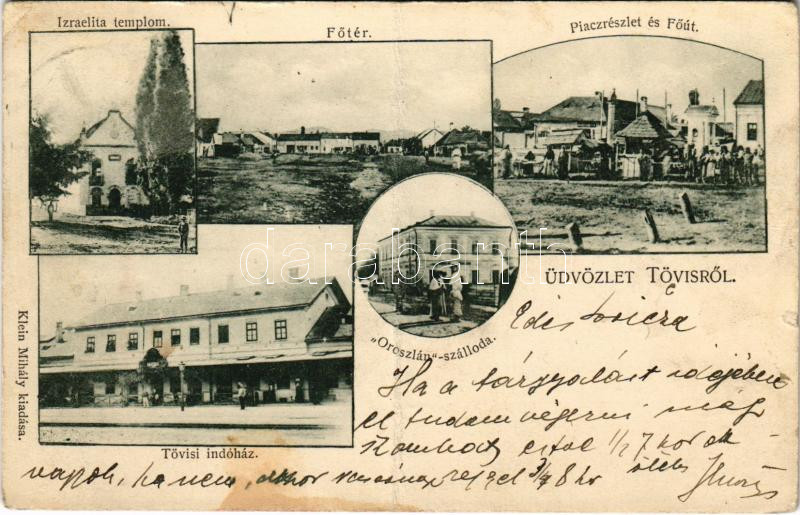 Izraelita templom.
Főtér.
Piaczrészlet és Főút.
darabanth
ÜDVÖZLET TÖVISRŐL.
„Oroszlán“-szálloda.
Tövisi indóház.
Klein Mihály kiadása.
Édes
Ha a tárgyalást idejében
el tudom végezni még
Szombat este 1/2 7 kor ott
vagyok, ha nem, akkor vasárnap reggel 3/4 8 kor
ölel